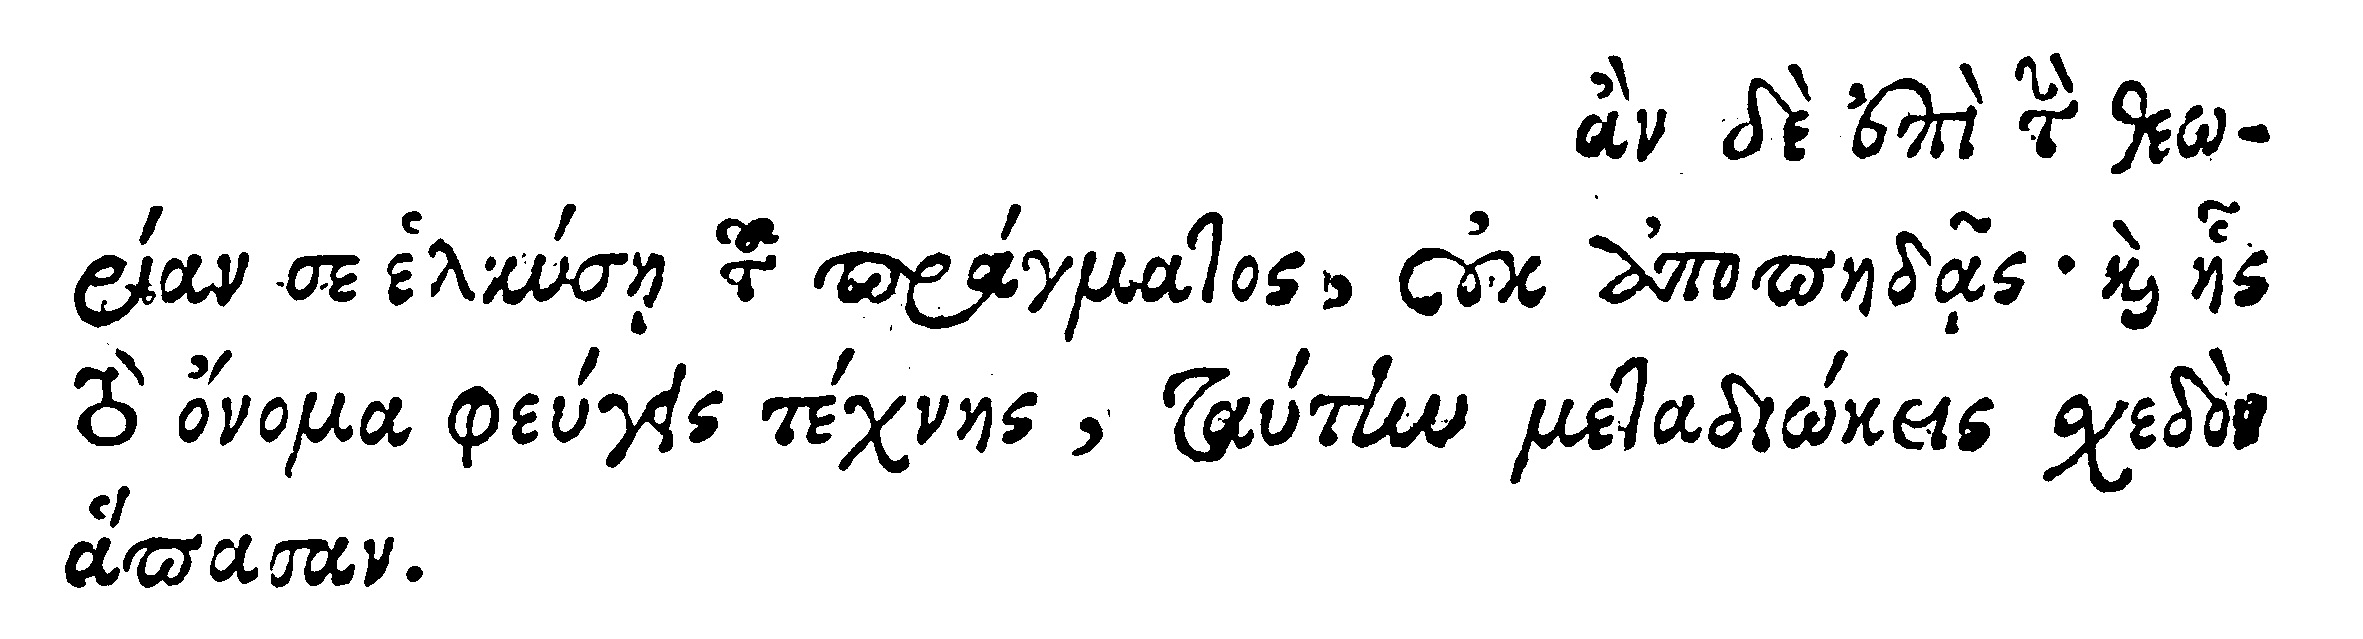 ἂν δὲ ἐπὶ τὴν θεω-
ρίαν σε ἑλκύσῃ τοῦ πράγματος, οὐκ ἀποπηδᾷς· καὶ ἧς
τὸ ὄνομα φεύγεις τέχνης, ταύτην μεταδιώκεις σχεδὸν
ἅπασαν.